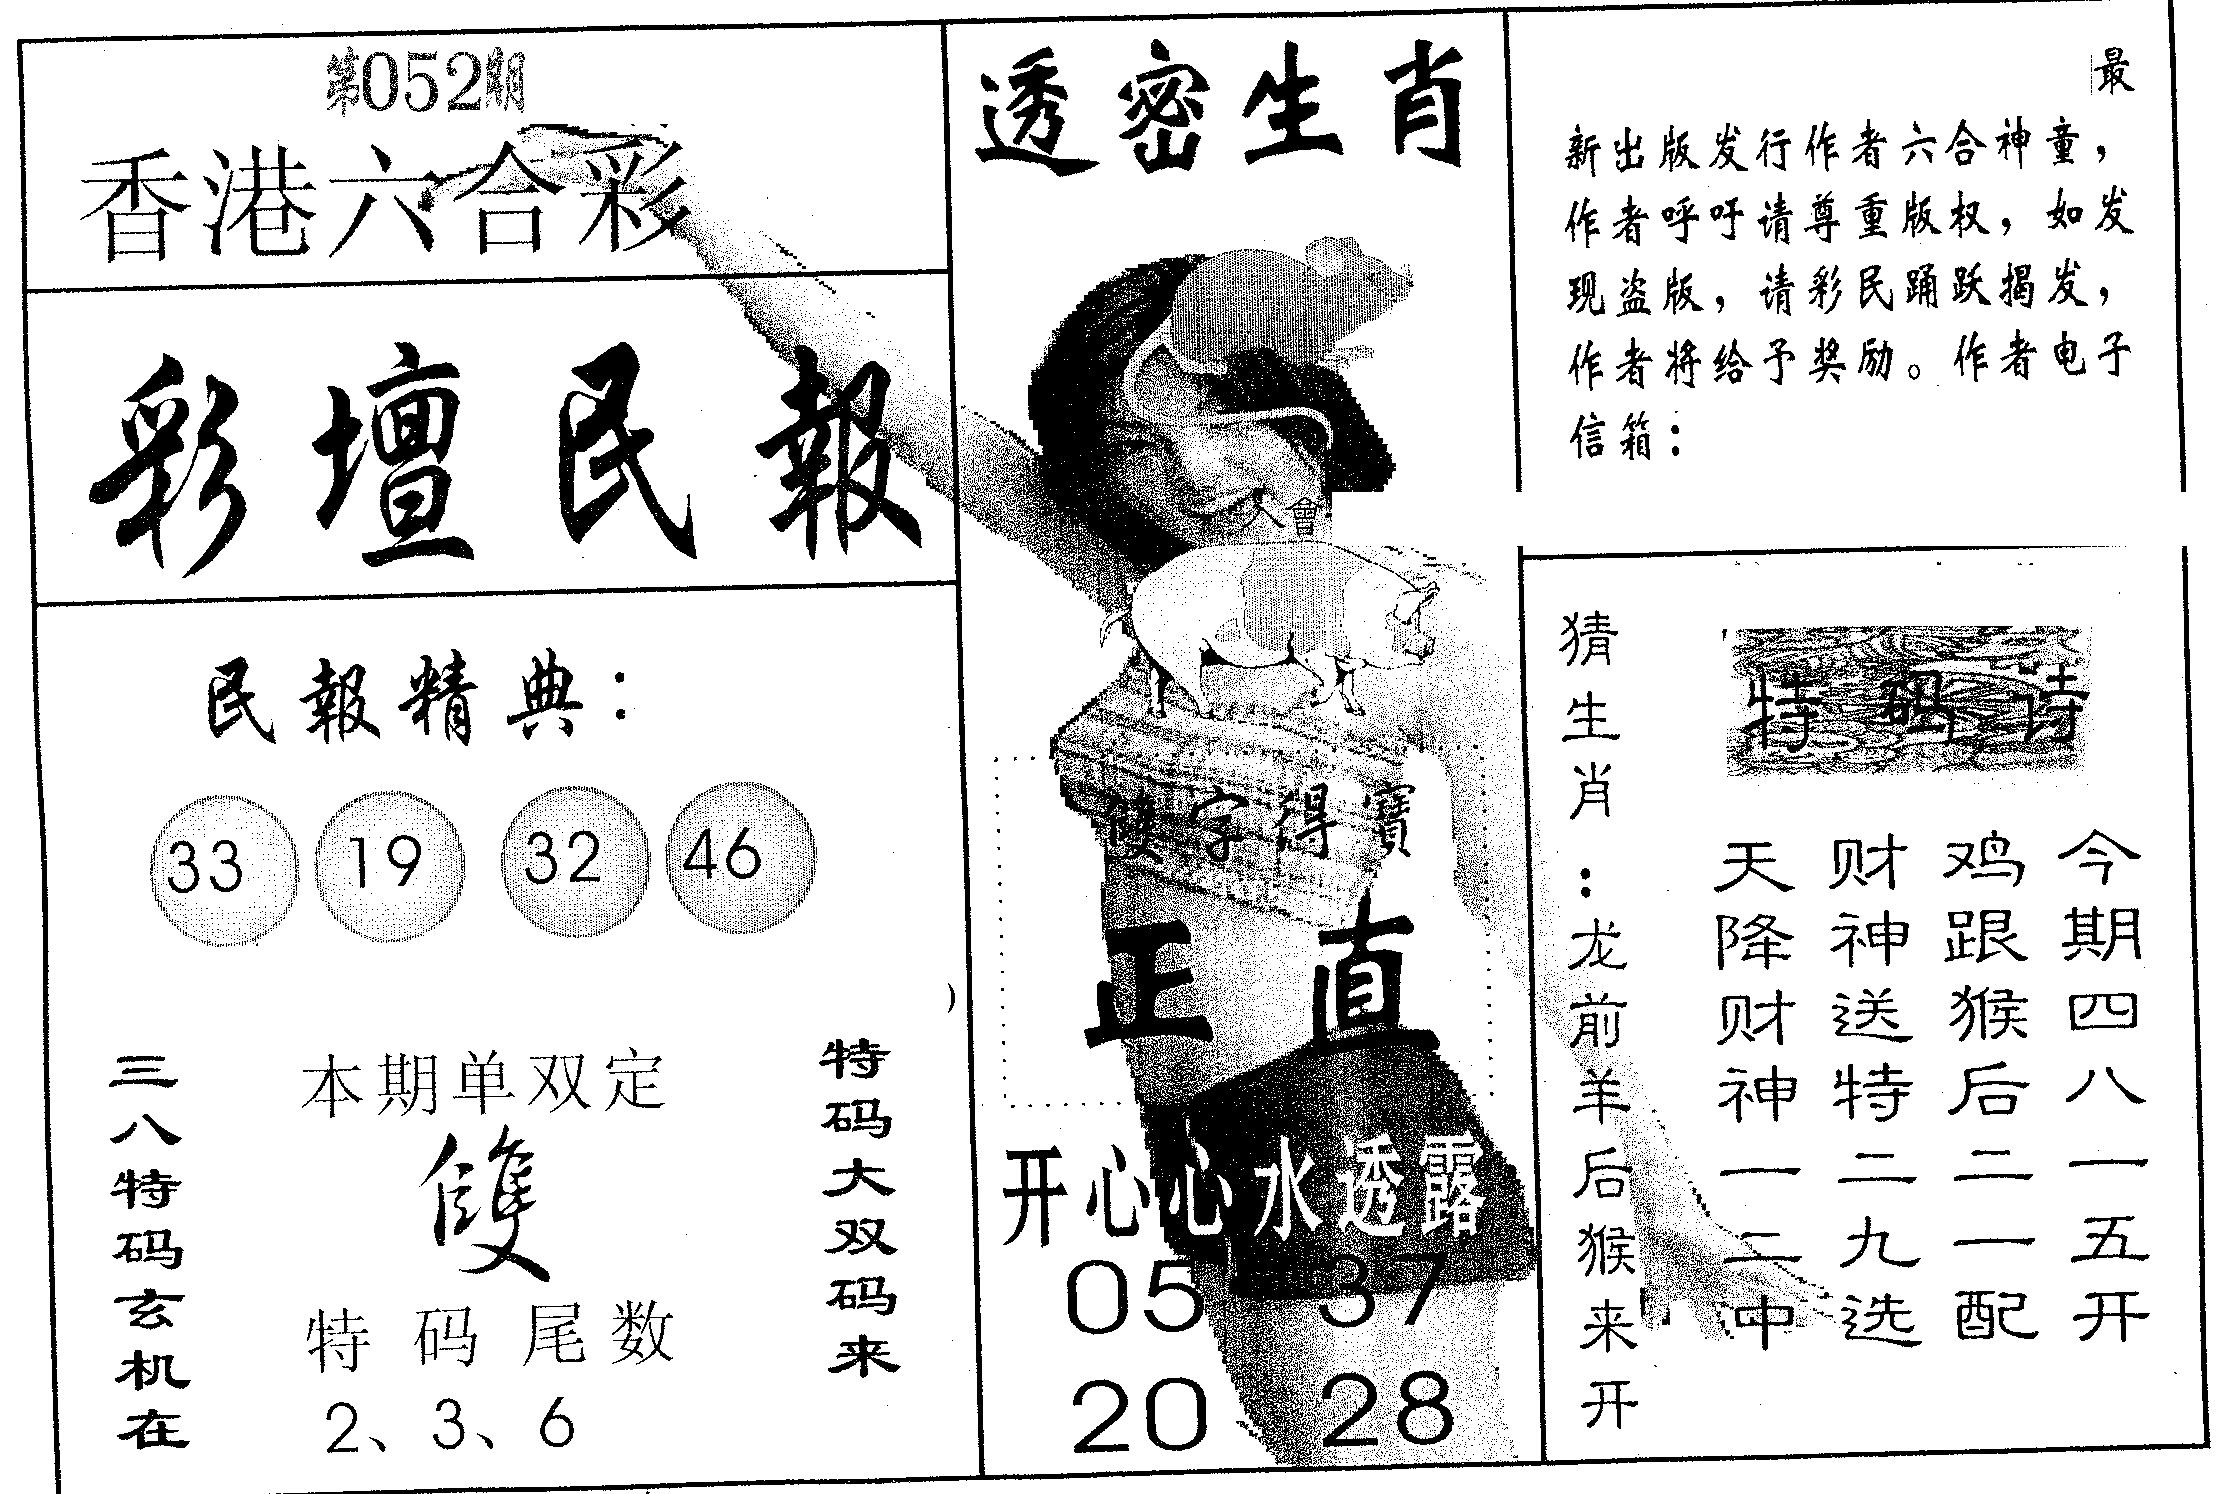 第052期
香港六合彩
彩壇民報
民報精典：
33 19 32 46
三八特码玄机在
本期单双定
雙
特码尾数
2、3、6
特码大双码来
透密生肖
會
雙字得寶
正直
开心心水透露
05 37
20 28
最
新出版发行作者六合神童，
作者呼吁请尊重版权，如发
现盗版，请彩民踊跃揭发，
作者将给予奖励。作者电子
信箱：
猜生肖：龙前羊后猴来开
特码诗
今期四八一五开
鸡跟猴后二一配
财神送特二九选
天降财神一二中